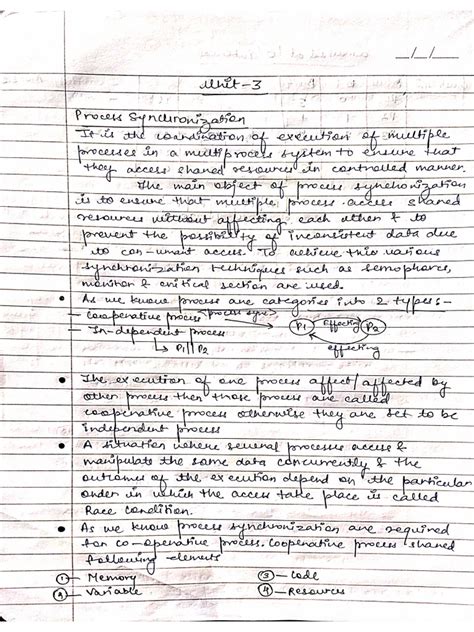 Unit-3
Process Synchronization
It is the coordination of execution of multiple
processes in a multiprocess system to ensure that
they access shared resources in controlled manner.
The main object of process synchronization
is to ensure that multiple process access shared
resources without affecting each other & to
prevent the possibility of inconsistent data due
to con-current access. To achieve this various
synchronization techniques such as semaphores,
monitor & critical section are used.
As we know process are categories into 2 types:-
- Cooperative process (process sync) P1 effecting P2
- In-dependent process effecting
P1||P2
The execution of one process affect/affected by
other process then those process are called
cooperative process otherwise they are set to be
independent process
A situation where several processes access &
manipulate the same data concurrently & the
outcomes of the execution depend on the particular
order in which the access take place is called
Race condition.
As we know process synchronization are required
for co-operative process. Cooperative process shared
following elements
① - Memory ③ - Code
② - Variable ④ - Resources